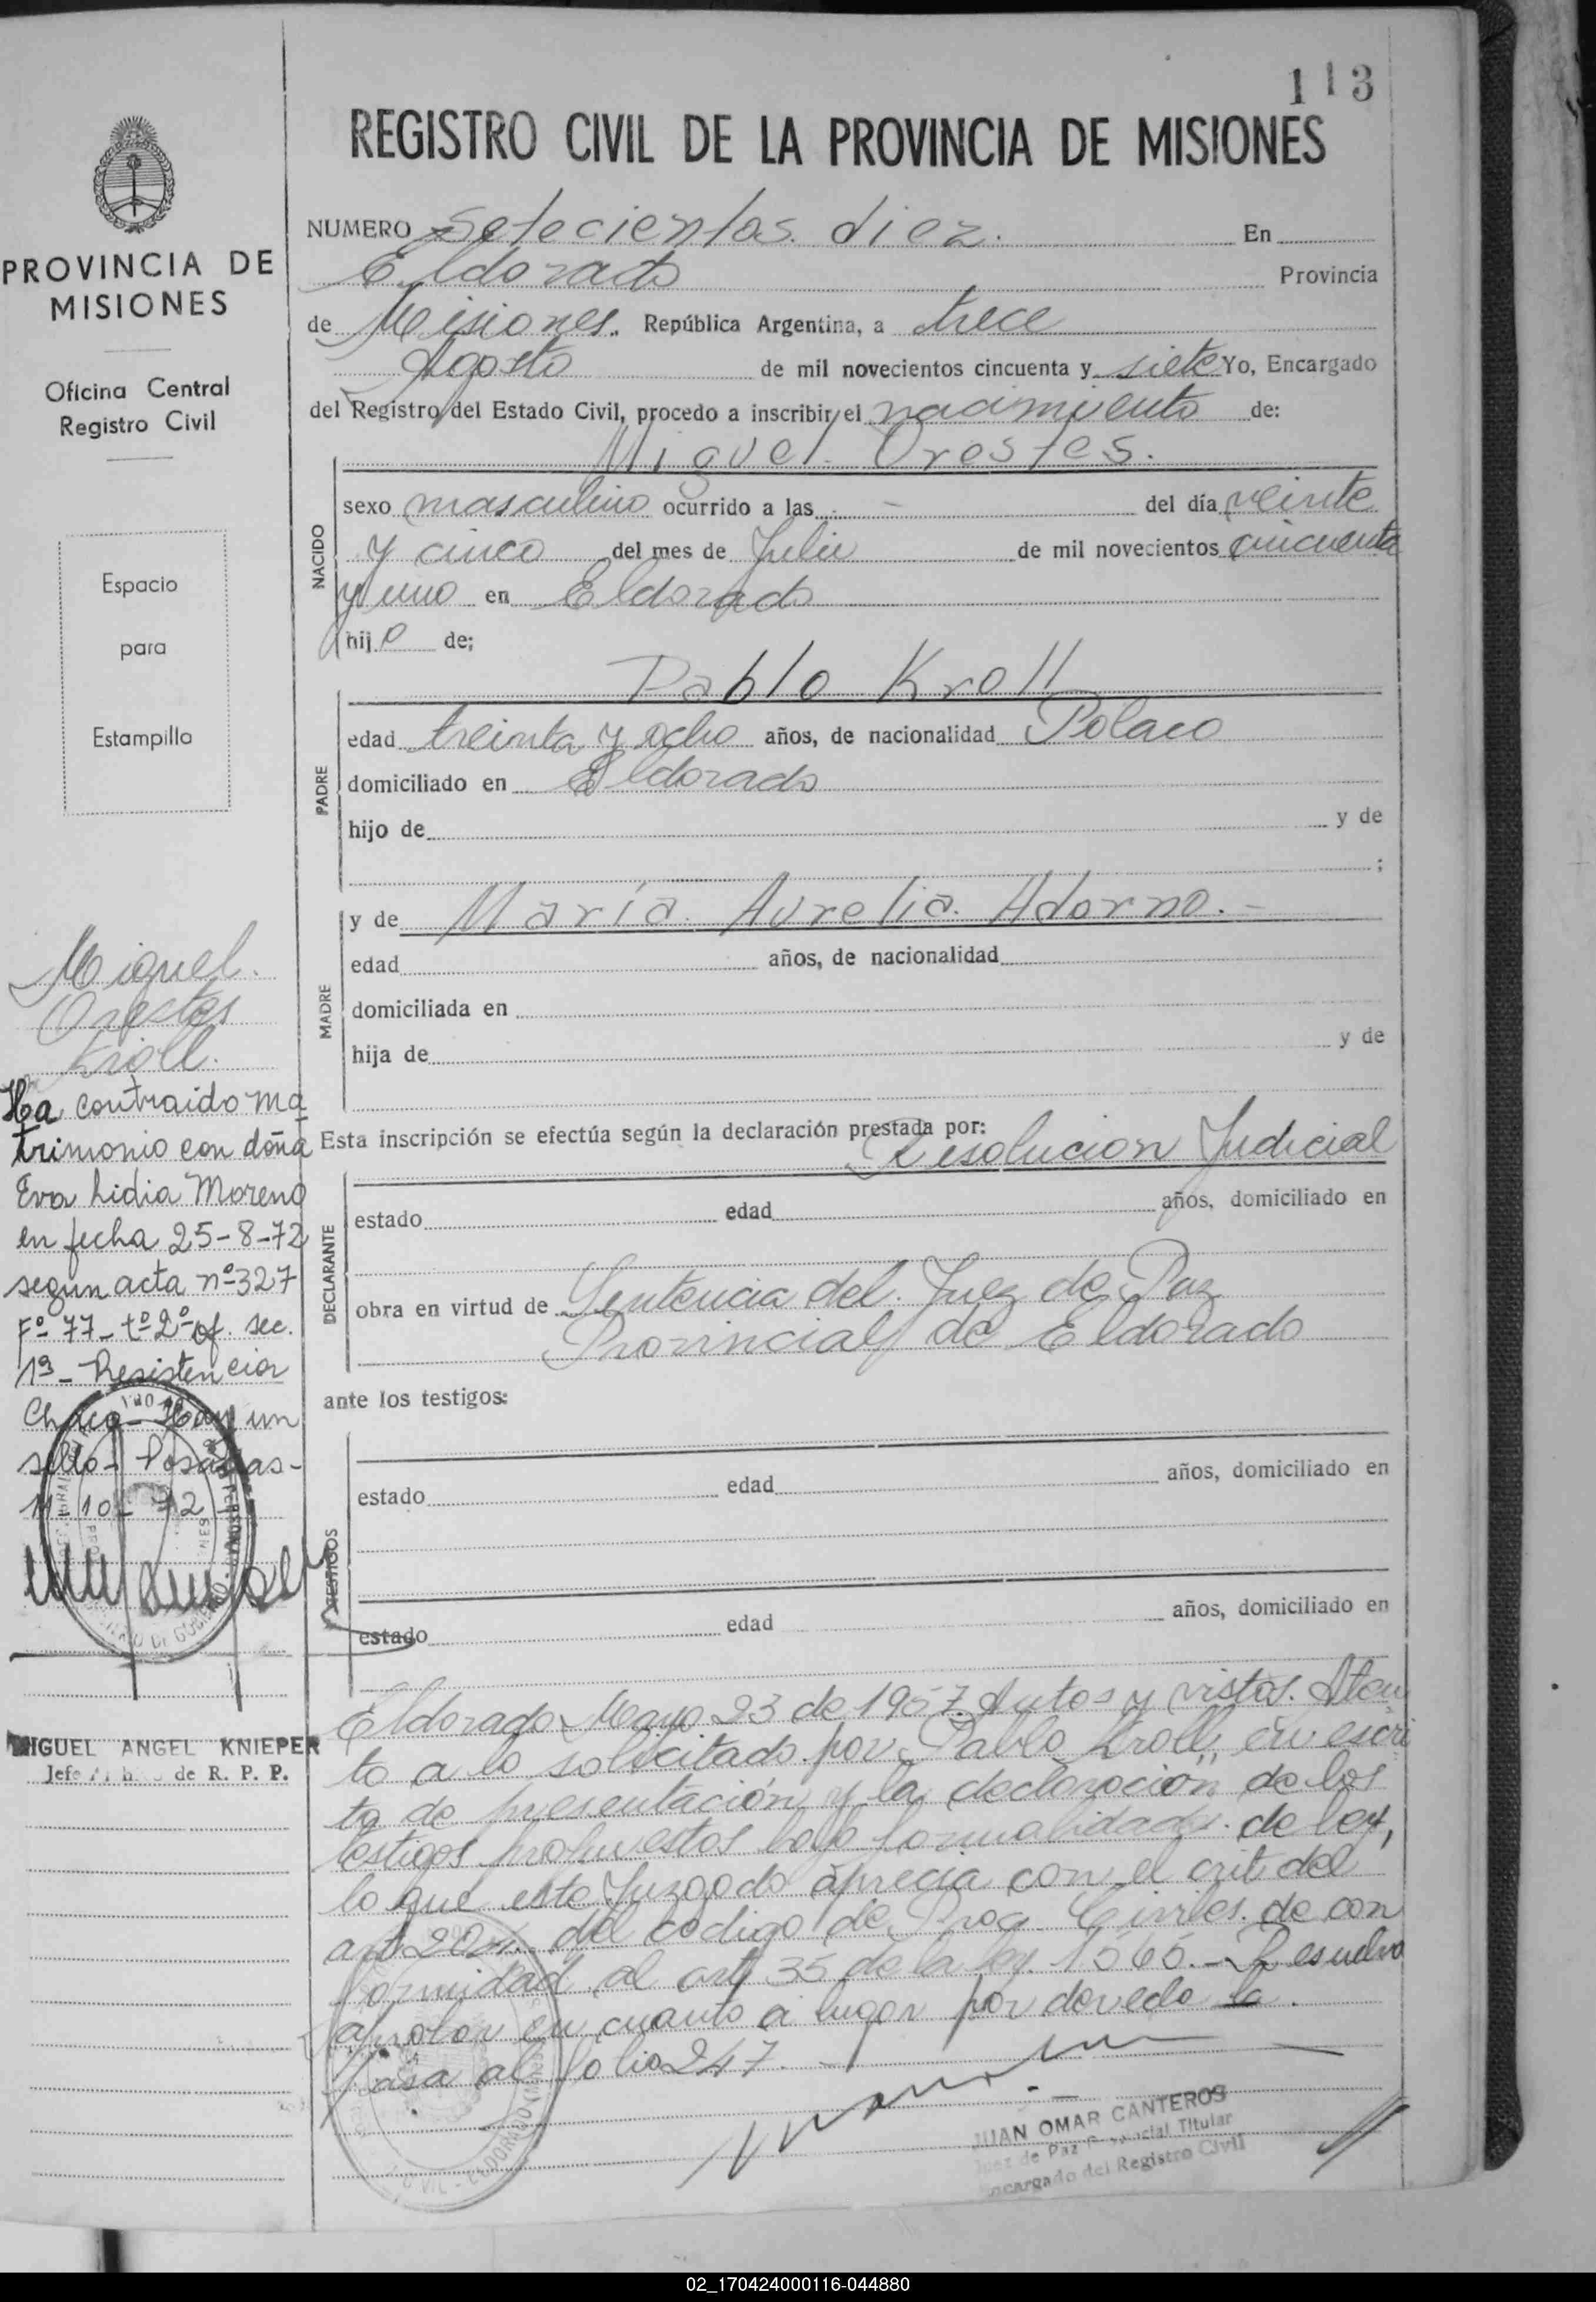 113
REGISTRO CIVIL DE LA PROVINCIA DE MISIONES
PROVINCIA DE
MISIONES
Oficina Central
Registro Civil
Espacio
para
Estampilla
NUMERO Setecientos diez. En
Eldorado Provincia
de Misiones. República Argentina, a trece
Agosto de mil novecientos cincuenta y siete Yo, Encargado
del Registro del Estado Civil, procedo a inscribir el nacimiento de:
Miguel Orestes.
NACIDO
sexo masculino ocurrido a las - del día veinte
y cinco del mes de Julio de mil novecientos cincuenta
y uno en Eldorado
hijo de;
Pablo Kroll
PADRE
edad treinta y ocho años, de nacionalidad Polaco
domiciliado en Eldorado
hijo de y de
;
y de María Aurelia Adorno.-
MADRE
edad años, de nacionalidad
domiciliada en
hija de y de
Esta inscripción se efectúa según la declaración prestada por:
Resolucion Judicial
DECLARANTE
estado edad años, domiciliado en
obra en virtud de Sentencia del Juez de Paz
Provincial de Eldorado
ante los testigos:
TESTIGOS
estado edad años, domiciliado en
estado edad años, domiciliado en
Eldorado Mayo 23 de 1957. Autos y vistos. Aten
to a lo solicitado por Pablo Kroll, en escri
to de presentación y la declaración de los
testigos propuestos bajo formalidades de ley,
lo que este Juzgado aprecia con el crit del
art 204 del codigo de Proc. Civiles. de con
formidad al art 35 de la ley 1565.- Resuelvo
aprobar en cuanto a lugar por derecho la
Pasa al folio 247.
JUAN OMAR CANTEROS
Juez de Paz Provincial Titular
Encargado del Registro Civil
Miguel.
Orestes
Kroll.
Ha contraido ma
trimonio con doña
Eva Lidia Moreno
en fecha 25-8-72
segun acta nº 327
Fº 77- tº 2º of. sec.
1ª- Resistencia
Chaco- Hay un
sello- Posadas-
11-10-72
MIGUEL ANGEL KNIEPER
Jefe de R. P. P.
02_170424000116-044880